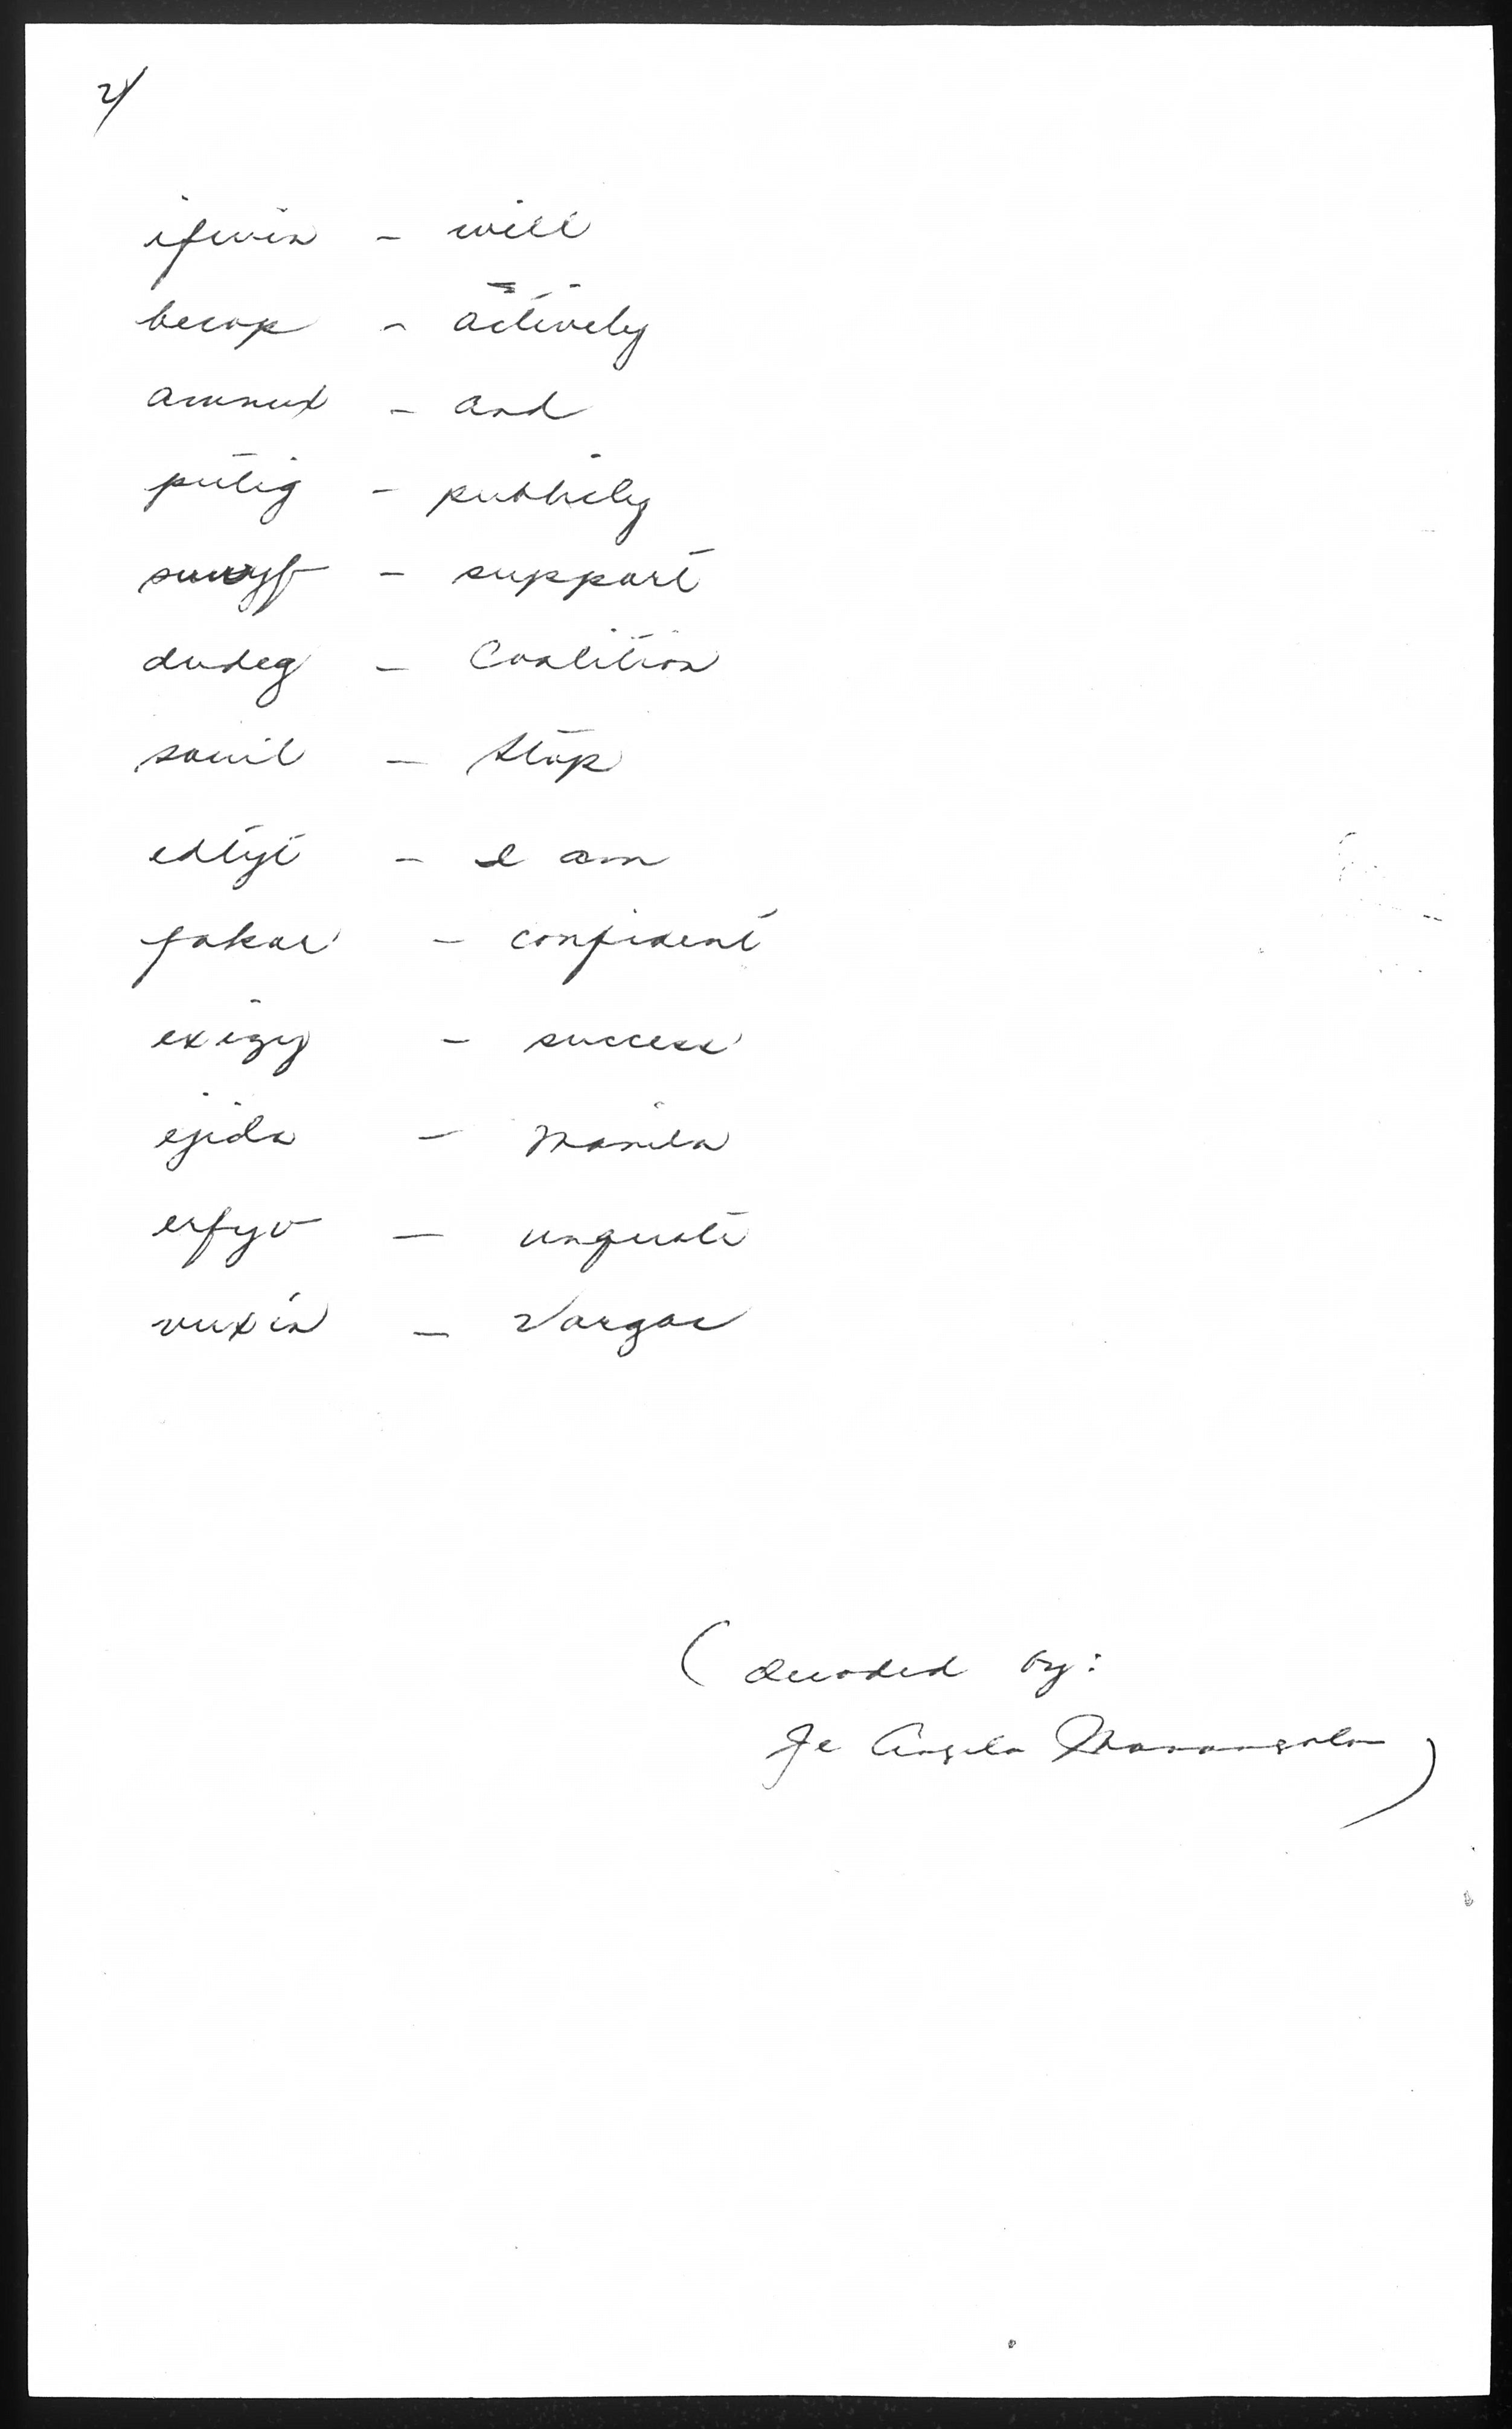 2/
ifwin - will
becop - actively
amnux - and
putig - publicly
suwyf - support
dudeg - Coalition
souil - Stop
edtyt - I am
fakar - confident
exizy - success
ejida - Manila
erfyv - unquote
vuxin - Vargas
(Decoded by:
Je Angela Manansala)